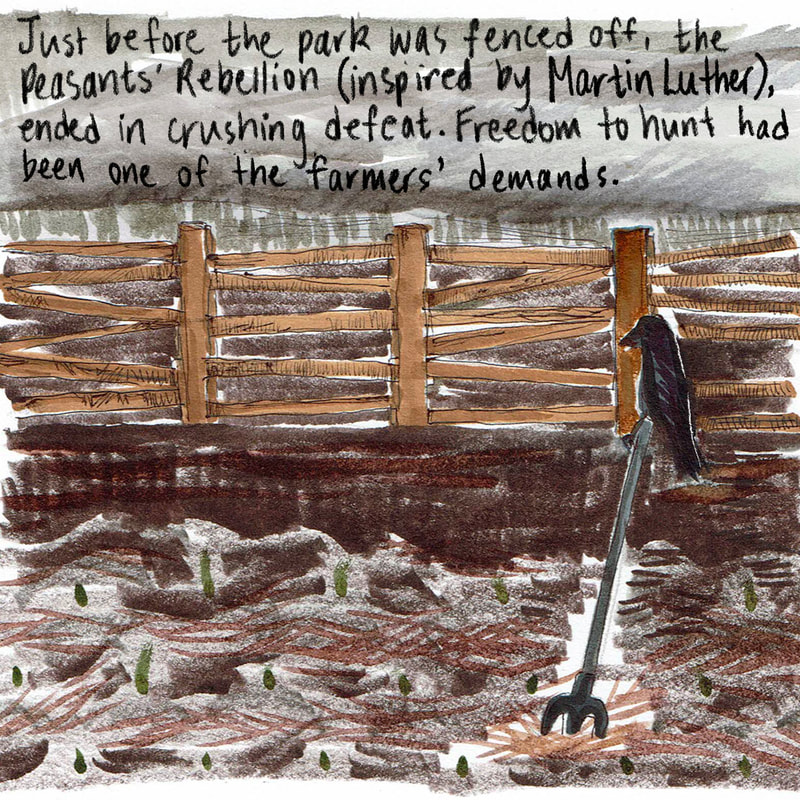 Just before the park was fenced off, the
Peasants' Rebellion (inspired by Martin Luther),
ended in crushing defeat. Freedom to hunt had
been one of the farmers' demands.